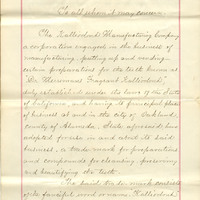 To all whom it may concern.
The Kalliodont Manufacturing Company
a corporation engaged in the business of
manufacturing, putting up and vending
certain preparations for the teeth known as
"Dr. Fragrant Kalliodont,"
duly established under the laws of the State
of California, and having its principal place
of business at and in the city of Oakland,
county of Alameda, State aforesaid, has
adopted for use in and about its said
business, a trade mark for preparations
and compounds for cleansing, preserving
and beautifying the teeth.
The said trade mark consists
of the fanciful word or name, "Kalliodont,"